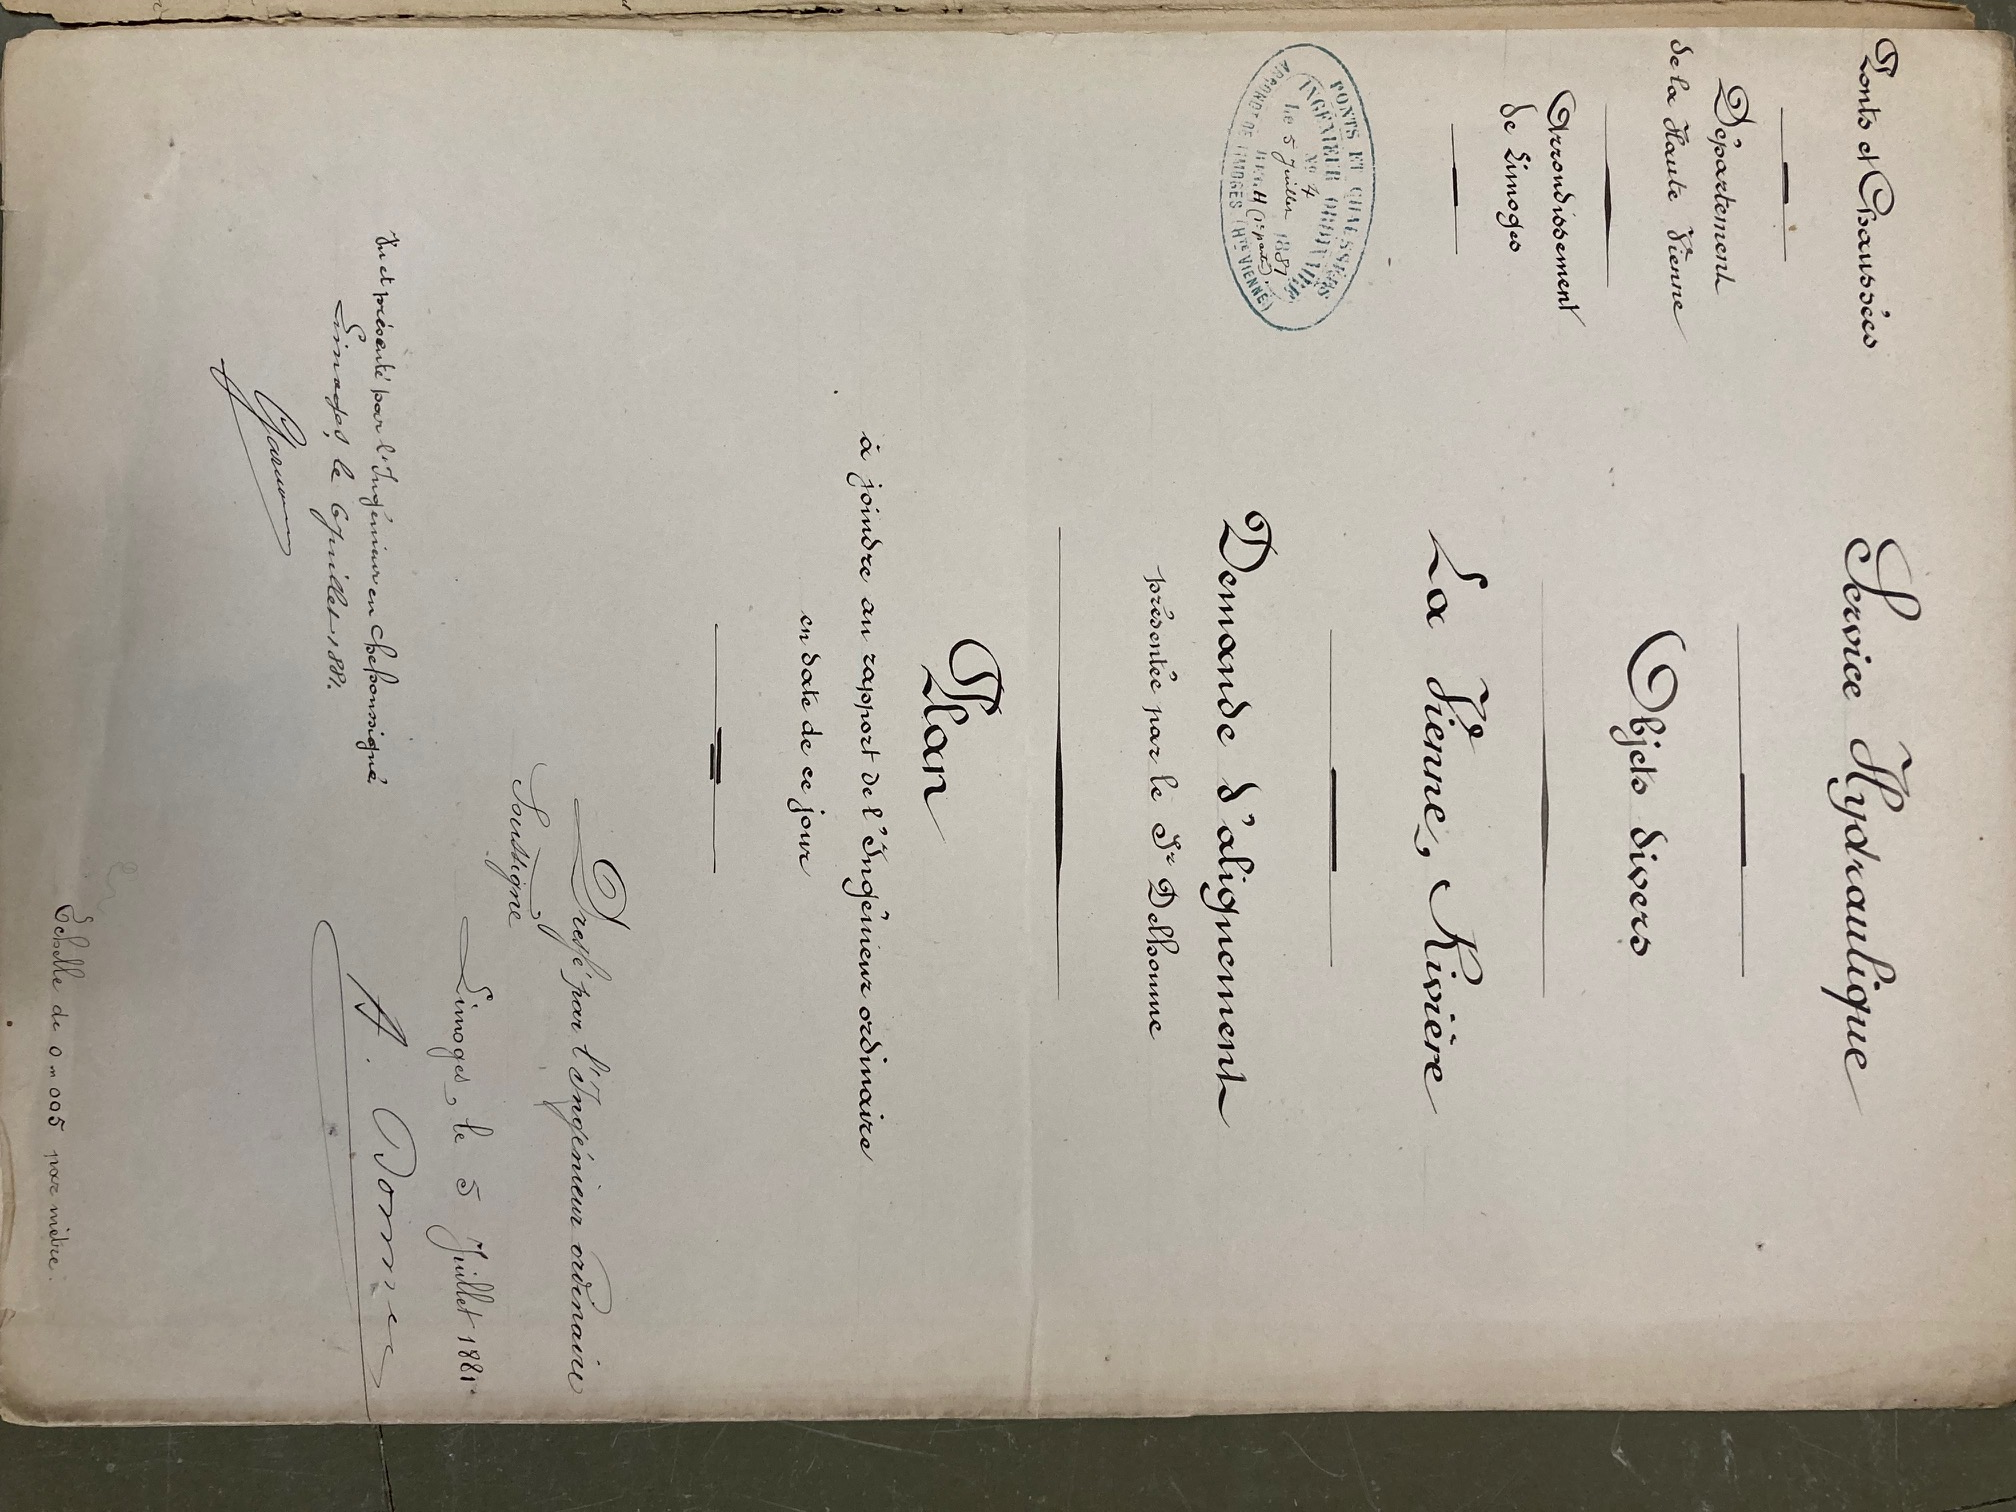 Ponts et Chaussées
Département
de la Haute Vienne
Arrondissement
de Limoges
PONTS ET CHAUSSÉES
INGÉNIEUR ORDINAIRE
No 4
le 5 Juillet 1881
REG. H
ARRONDt DE LIMOGES (Hte VIENNE)
Service Hydraulique
Objets divers
La Vienne, Rivière
Demande d'alignement
présentée par le Sr Delhomme
Plan
à joindre au rapport de l'Ingénieur ordinaire
en date de ce jour
Dressé par l'Ingénieur ordinaire
Soussigné
Limoges, le 5 Juillet 1881.
Vu et présenté par l'Ingénieur en chef soussigné
Limoges, le 6 Juillet 1881.
Echelle de 0m005 par mètre.